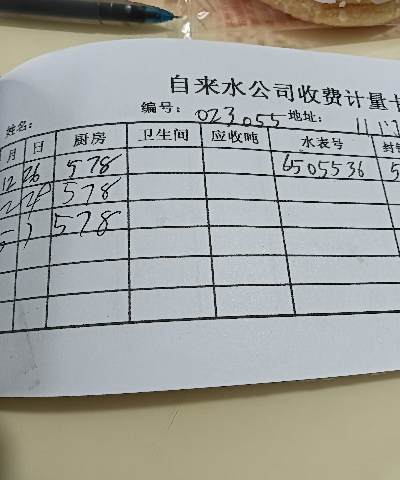 自来水公司收费计量卡
编号: 023055 地址:
姓名:
月 日 厨房 卫生间 应收吨 水表号 封
12 26 578 6505536 5
578
578